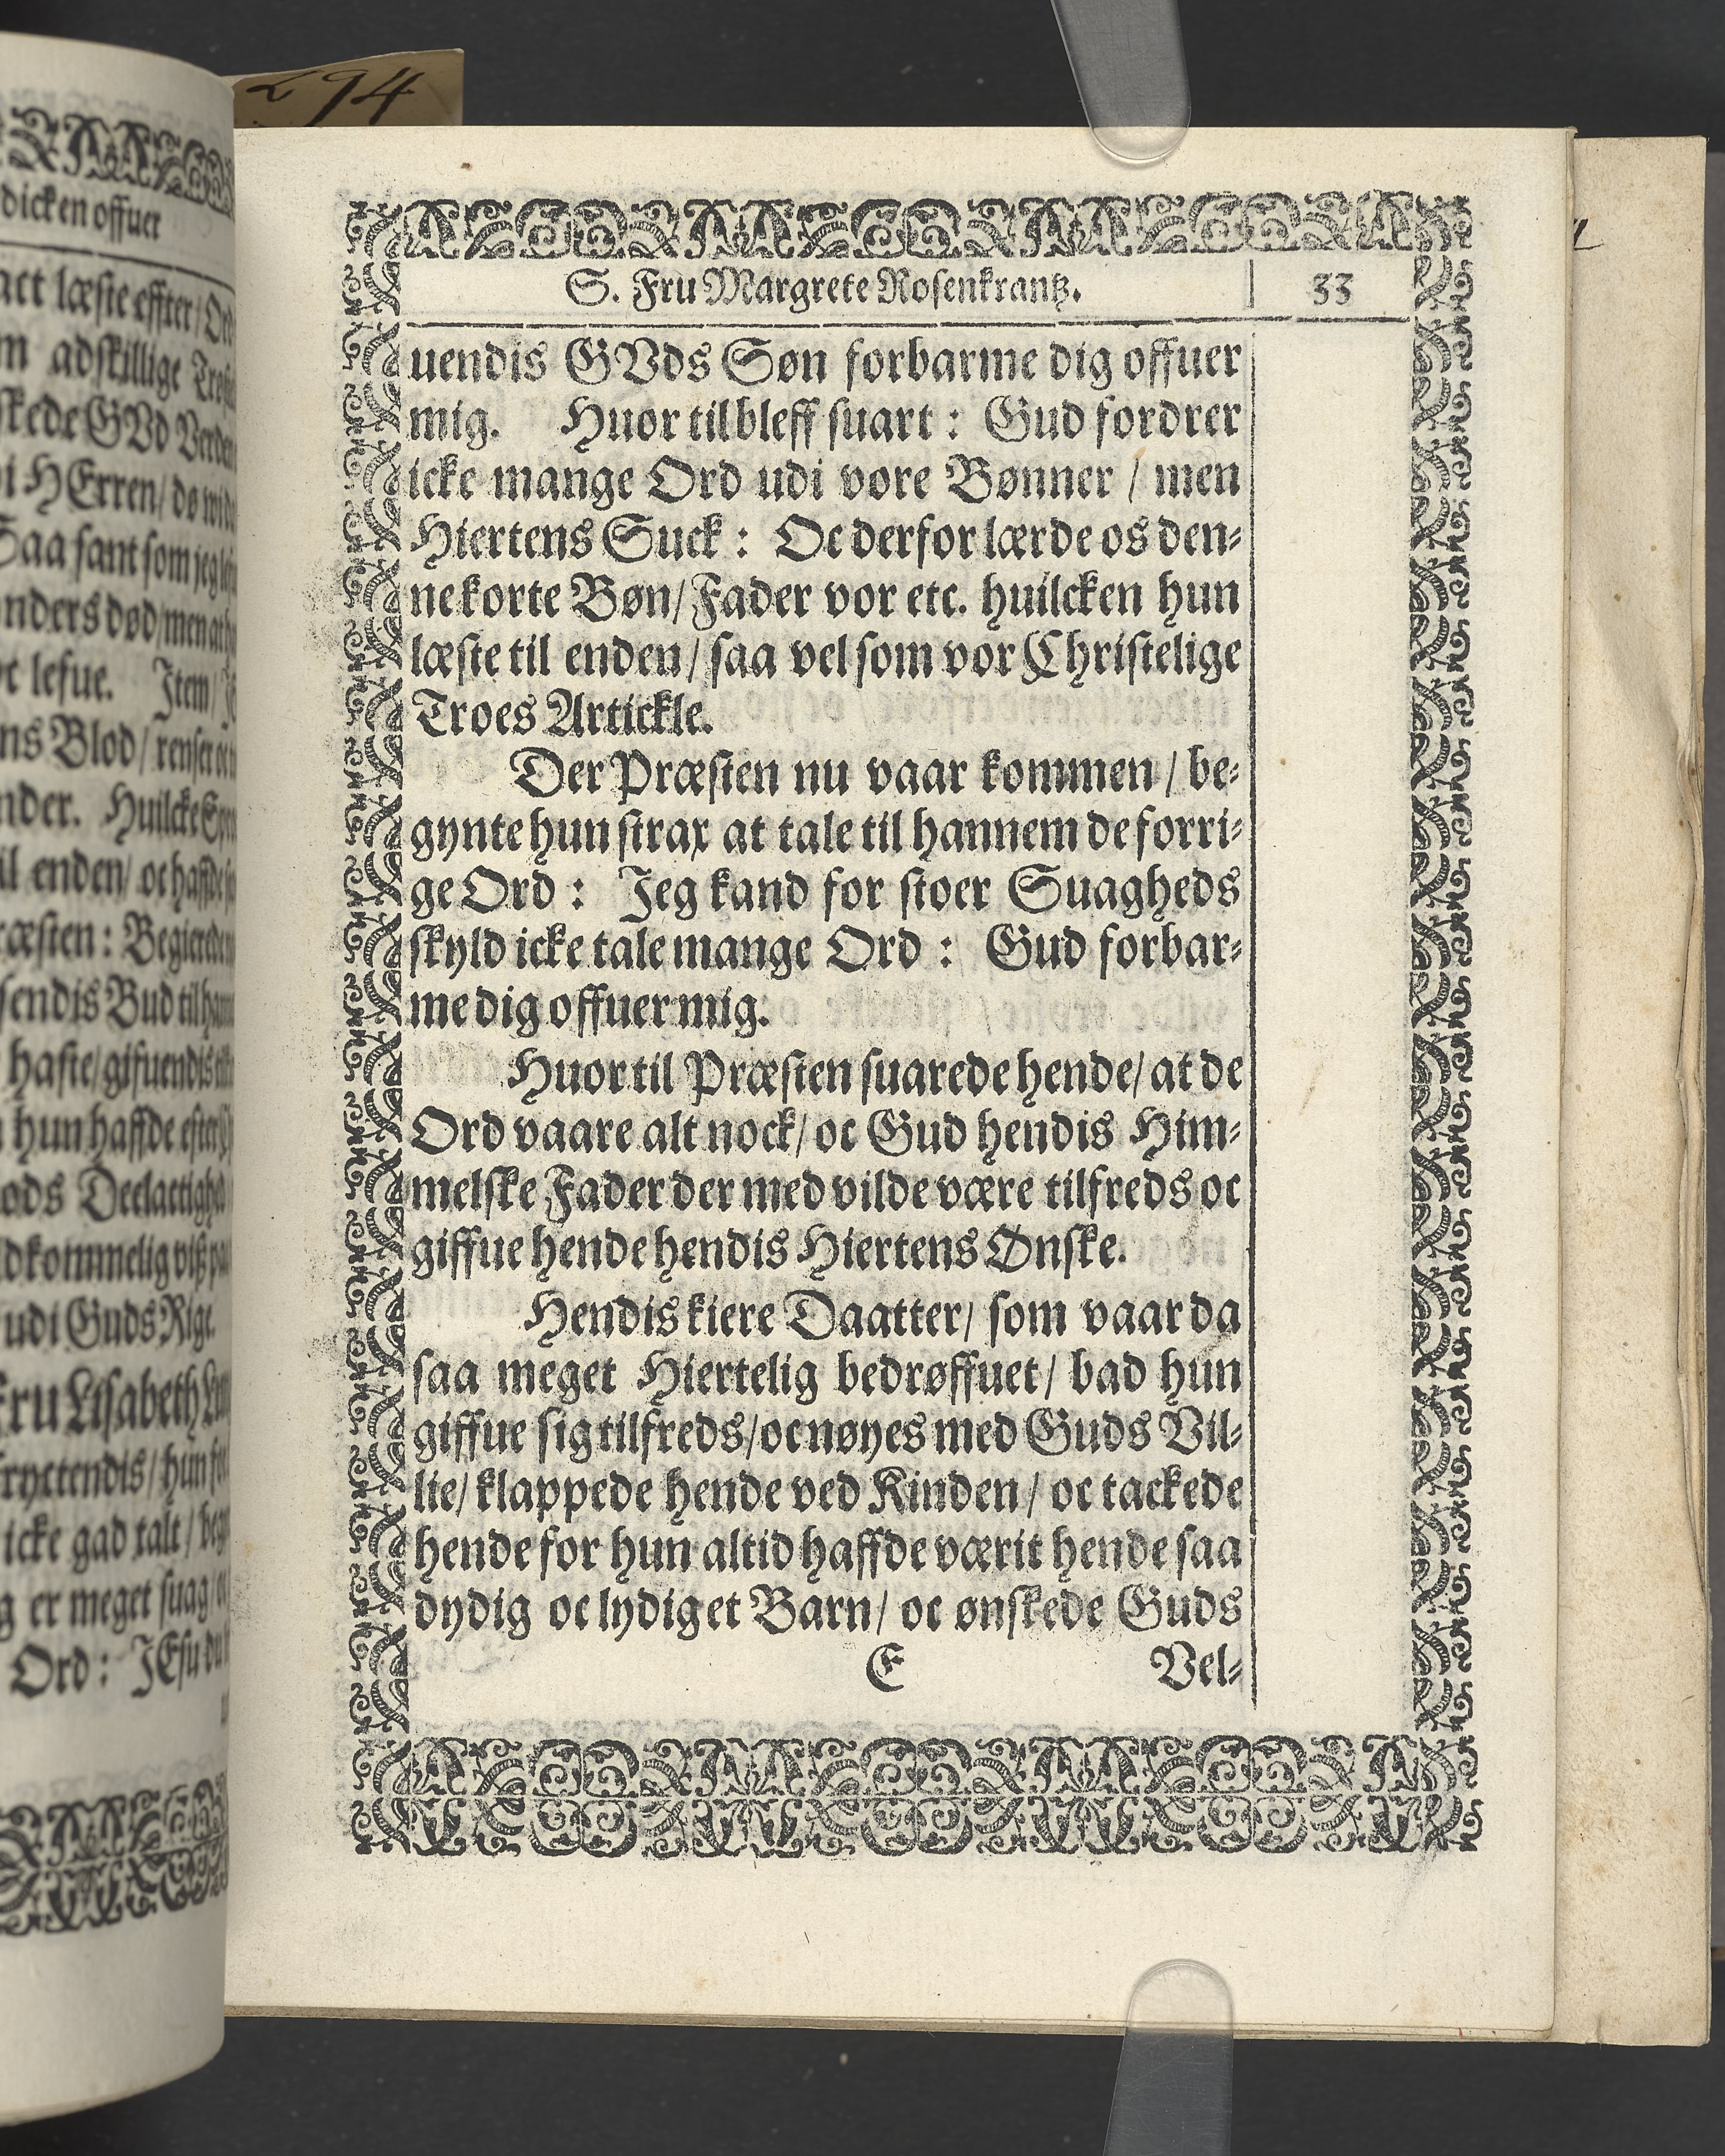 294
dicken offuer
læste effter/
adskillige
GVd
HErren/
Saa sant som jeg
død/
lefue. Item/
Blod/
Huilcke
enden/
Begierede
Bud til
haste/
hun haffde
udi Guds Rige.
Fru Lisabeth
hun
icke gad talt/
er meget suag/
Ord: JEsu du
S. Fru Margrete Rosenkrantz.
33
uendis GVds Søn forbarme dig offuer
mig. Huor til bleff suart: Gud fordrer
icke mange Ord udi vore Bønner / men
Hiertens Suck: Oc derfor lærde os den-
ne korte Bøn/ Fader vor etc. huilcken hun
læste til enden/ saa vel som vor Christelige
Troes Artickle.
Der Præsten nu vaar kommen / be-
gynte hun strax at tale til hannem de forri-
ge Ord: Jeg kand for stoer Suagheds
skyld icke tale mange Ord: Gud forbar-
me dig offuer mig.
Huor til Præsten suarede hende/ at de
Ord vaare alt nock/ oc Gud hendis Him-
melske Fader der med vilde være tilfreds oc
giffue hende hendis Hiertens Ønske.
Hendis kiere Daatter/ som vaar da
saa meget Hiertelig bedrøffuet/ bad hun
giffue sig tilfreds/ oc nøyes med Guds Vil-
lie/ klappede hende ved Kinden / oc tackede
hende for hun altid haffde værit hende saa
dydig oc lydig et Barn/ oc ønskede Guds
E Vel-